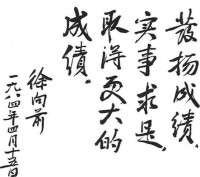 發扬成绩，
实事求是，
取得更大的
成绩。
徐向前
一九八四年四月十五日